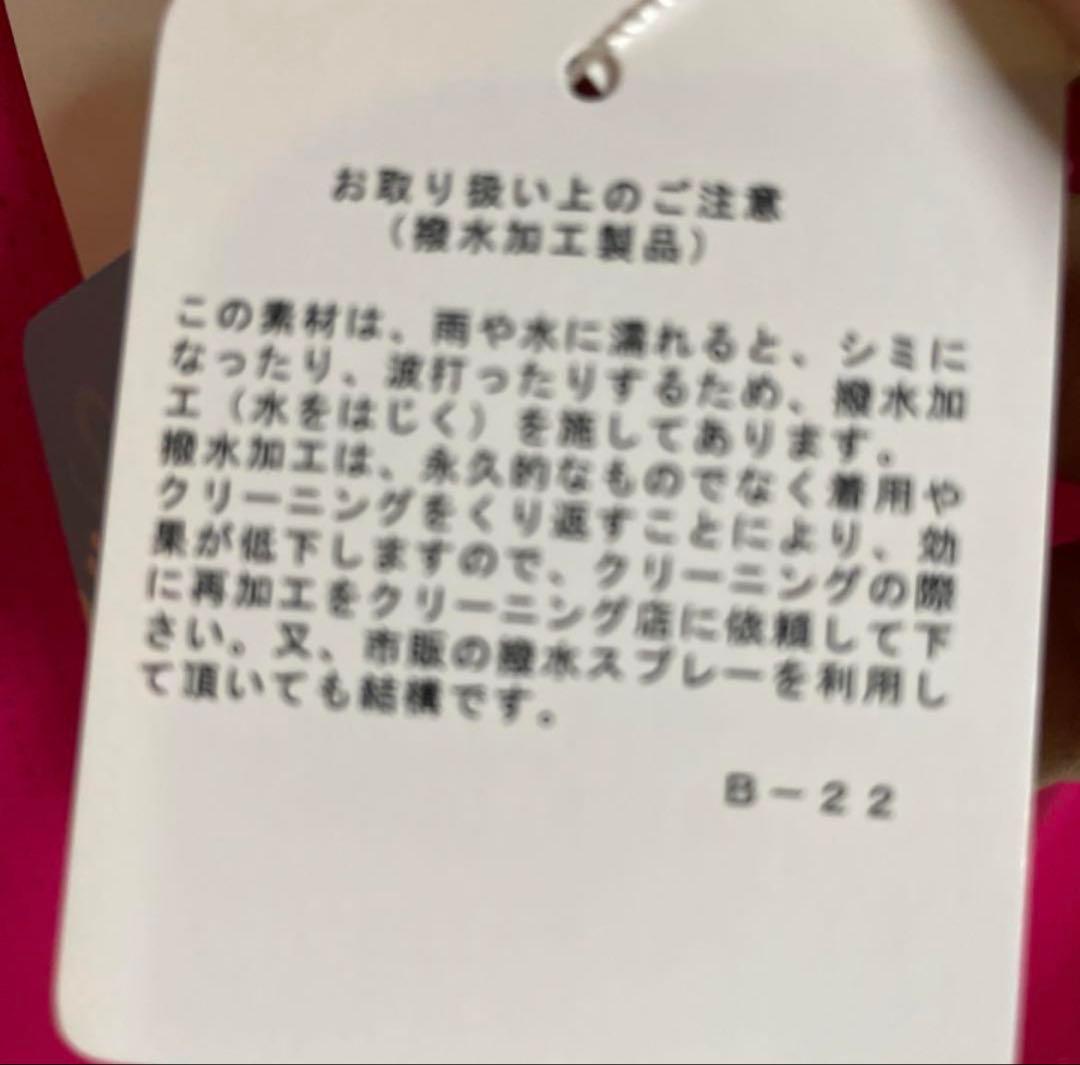 お取り扱い上のご注意
(撥水加工製品)
この素材は、雨や水に濡れると、シミに
なったり、波打ったりするため、撥水加
工(水をはじく)を施してあります。
撥水加工は、永久的なものでなく着用や
クリーニングをくり返すことにより、効
果が低下しますので、クリーニングの際
に再加工をクリーニング店に依頼して下
さい。又、市販の撥水スプレーを利用し
て頂いても結構です。
B-22